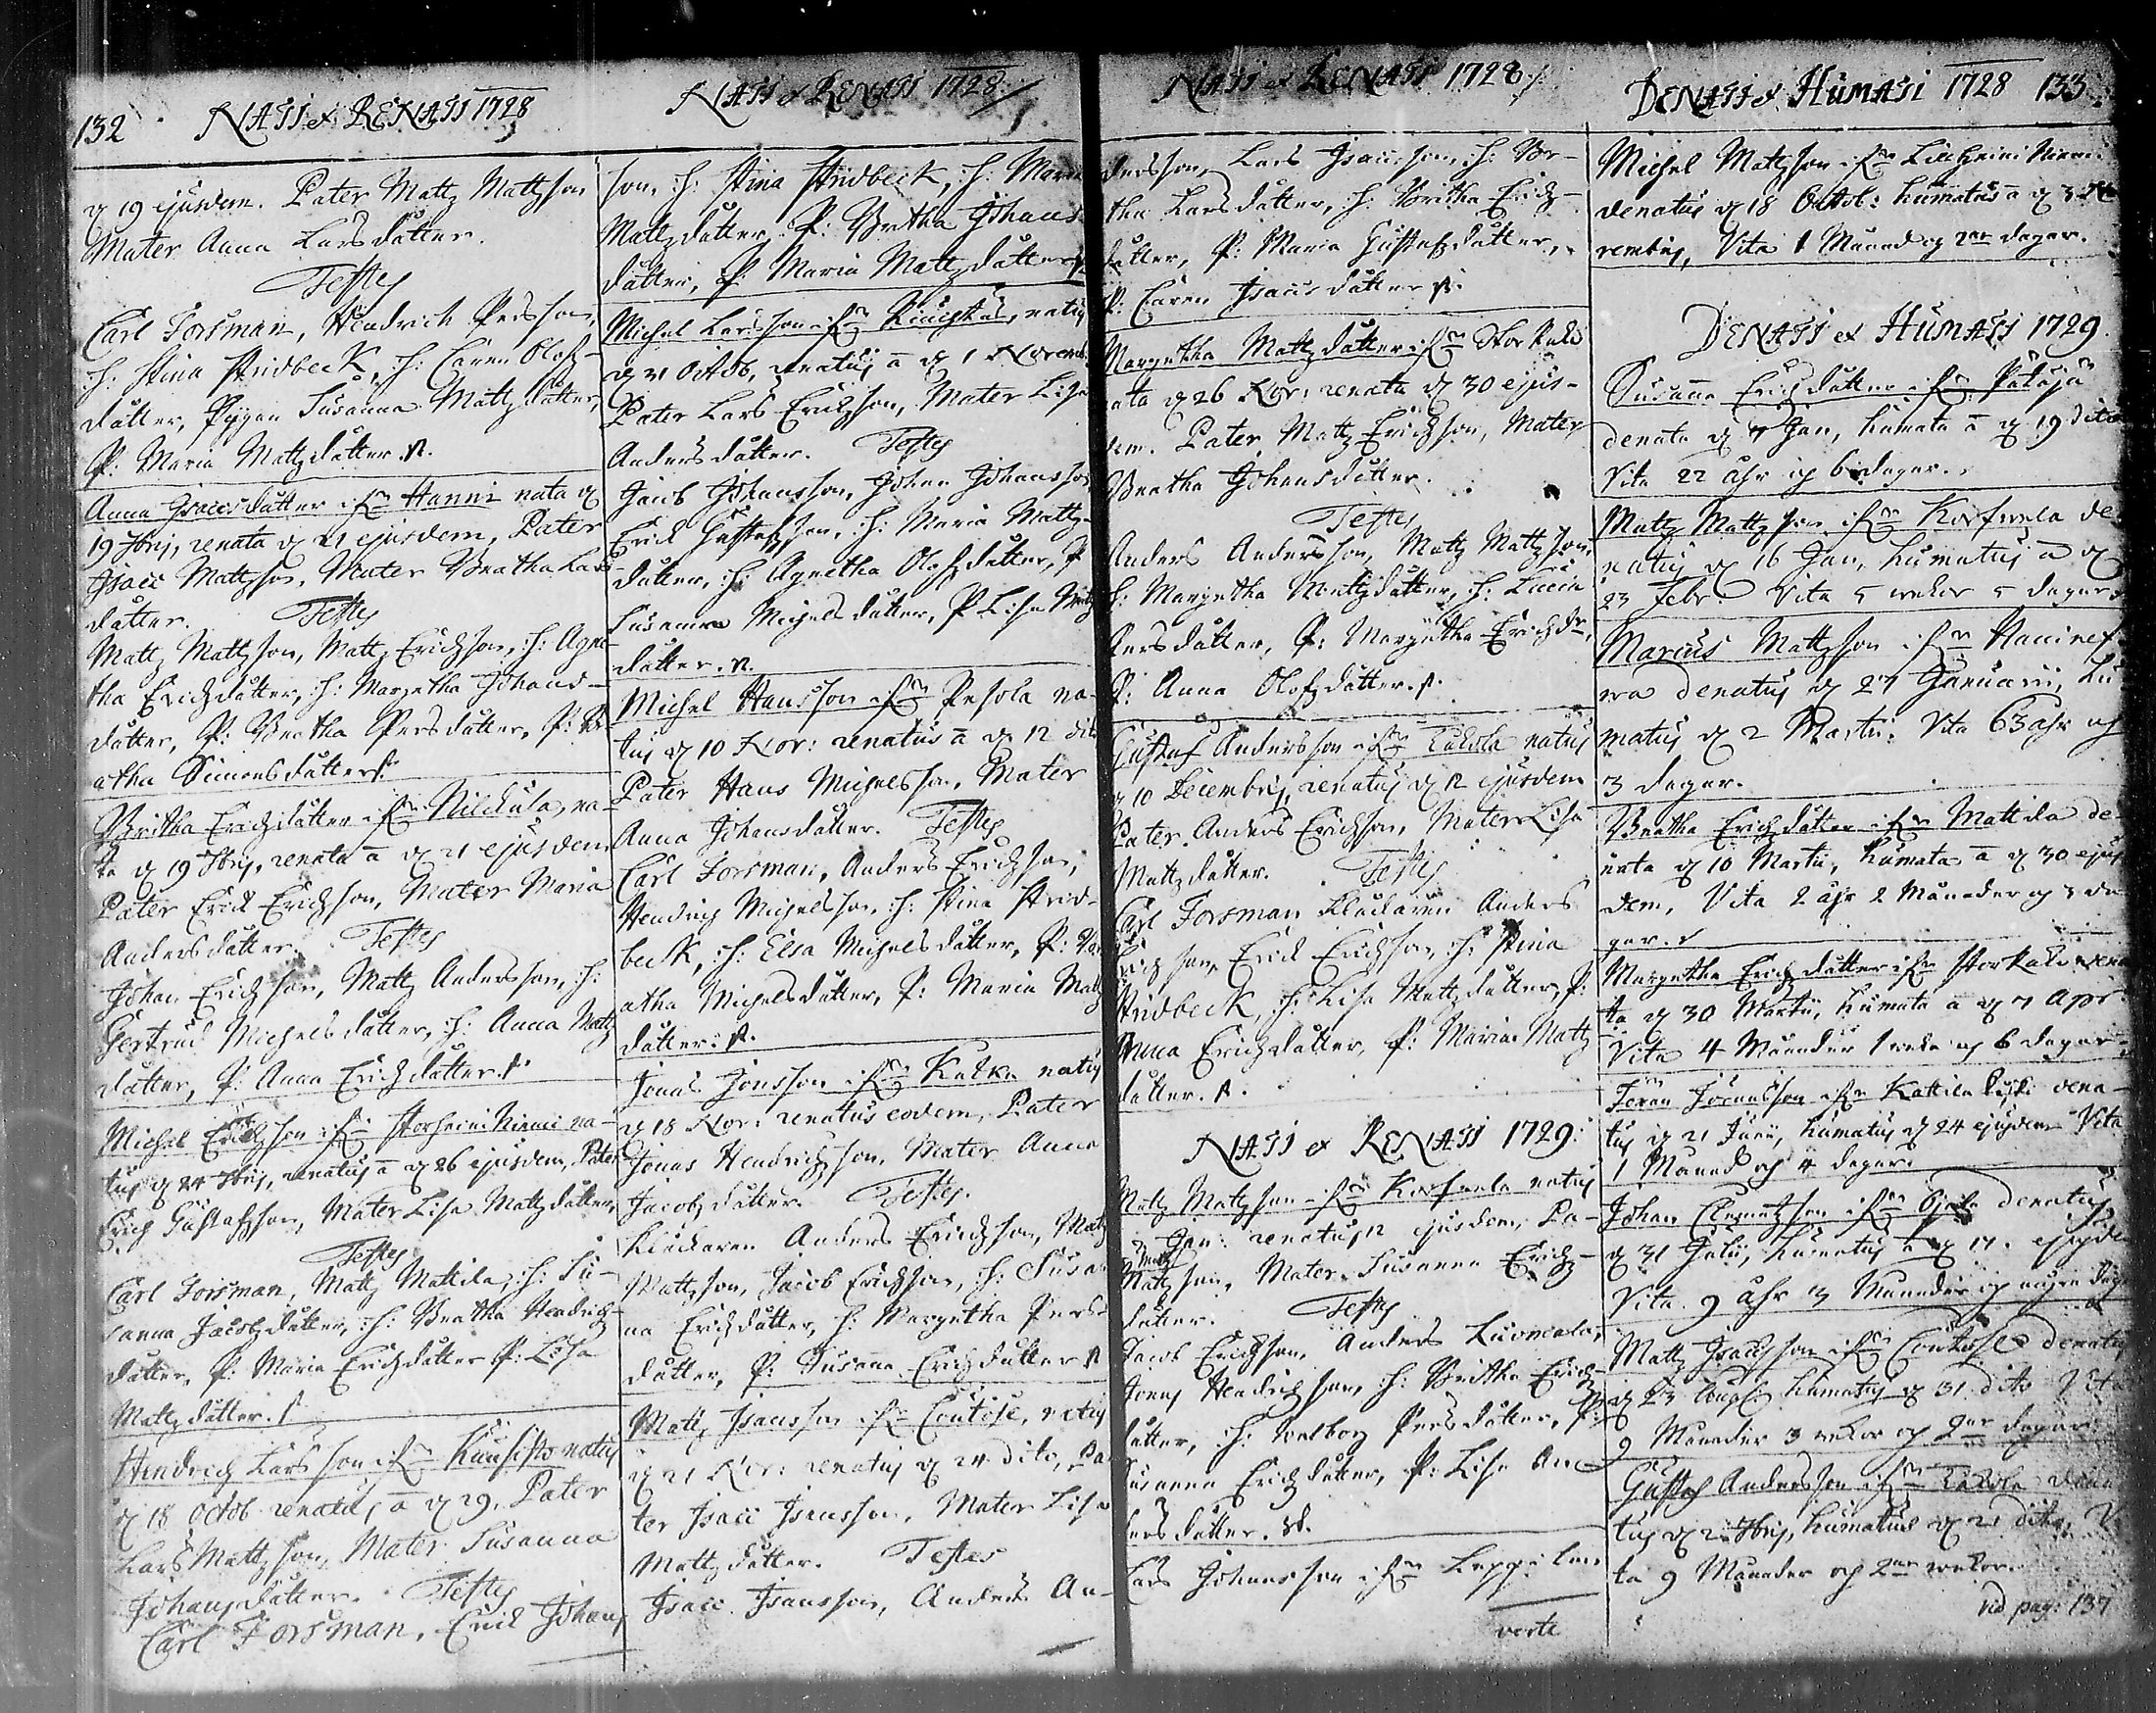 132 NATI et RENATI 1728
d 19 ejusdem. Pater Matz Mattzson
Mater Anna Larsdatter.
Testes
Carl Forsman, Hendrich Persson,
H: Stina Stridbeck, H: Caren Olofz-
datter, Pigan Susanna Mattzdatter,
P: Maria Mattzdatter.
Anna Isacsdatter ifrån Hanni nata d
19 7bris, renata d 21 ejusdem, Pater
Isacc Mattzson, Mater Beatha Lars-
datter. Testes
Mattz Mattzson, Mattz Erichson, H: Agne-
tha Erichdatter, H: Margetha Johans-
datter, P: Beatha Persdatter, P: Be-
atha Simonsdatter
Britha Erichdatter ifrån Nickula, na-
ta d 19 7bris, renata d 21 ejusdem
Pater Erick Erichson, Mater Maria
Andersdatter. Testes
Johan Erichson, Mattz Andersson, H:
Gertrud Michelsdatter, H: Anna Mattz
datter, P: Anna Erichdatter.
Michel Erichson ifrån Storheininiemi na-
tus d 24 7bris, renatus d 26 ejusdem, Pater
Erich Gustafzson, Mater Lisa Mattzdatter,
Testes
Carl Forsman, Mattz Mattila, H: Su-
sanna Jacobzdatter, H: Beatha Hendrichz-
datter, P: Maria Erichdatter P: Lisa
Mattzdatter.
Hendrich Larsson ifrån Kuusisto natus
d 18 Octob. renatus d 29, Pater
Lars Mattzson, Mater Susanna
Johansdatter. Testes
Carl Forsman, Erick Johans
NATI et RENATI 1728
son, H: Stina Stridbeck, H: Maria
Mattzdatter P: Beatha Johans
datter, P: Maria Mattzdatter
Michel Larsson ifrån natus
d 31 Octob, renatus d 1 Novemb.
Pater Lars Erichson, Mater Lisa
Andersdatter. Testes
Jacob Johansson, Johan Johansson
Erick Gustafzson, H: Maria Mattz-
datter, H: Agnetha Olofzdatter, P
Susanna Michelsdatter, P Lisa Mattz
datter.
Michel Hansson ifrån Pesola na-
tus d 10 Nov: renatus d 12 dito
Pater Hans Michelsson, Mater
Anna Johansdatter. Testes
Carl Forsman, Anders Erichson,
Hendrich Michelsson, H: Stina Strid-
beck, H: Elsa Michelsdatter, P: Be-
atha Michelsdatter, P: Maria Mattz
datter.
Jonas Jonsson ifrån Katka natus
d 18 Nov: renatus eodem, Pater
Jonas Hendrichson, Mater Anna
Jacobzdatter. Testes.
Kluckaren Anders Erichson, Mattz
Mattzson, Jacob Erichson, H: Susan-
na Erichdatter, H: Margetha Pers-
datter, P: Susanna Erichdatter
Mattz Isacsson ifrån natus
d 21 Nov: renatus d 24 dito, Pa-
ter Isacc Isacsson, Mater Lisa
Mattzdatter. Testes
Isacc Isacsson, Anders An-
NATI et RENATI 1728
dersson, Lars Isacsson, H: Be-
tha Larsdatter, H: Britha Erich-
datter, P: Maria Gustafzdatter,
P: Caren Isacsdatter.
Margetha Mattzdatter ifrån
nata d 26 Nov: renata d 30 ejus-
dem. Pater Mattz Erichson, Mater
Beatha Johansdatter.
Testes
Anders Andersson, Mattz Mattzson,
H: Margetha Mattzdatter, H: Lucia
Larsdatter, P: Margetha Erichdr,
P: Anna Olofzdatter.
Gustaf Andersson ifrån Takala natus
d 10 Decembris, renatus d 12 ejusdem
Pater Anders Erichson, Mater Lisa
Mattzdatter. Testes
Carl Forsman Kluckaren Anders
Erichson, Erick Erichson, H: Stina
Stridbeck, H: Lisa Mattzdatter, P:
Anna Erichdatter, P: Maria Mattz
datter.
NATI et RENATI 1729
Mattz Mattzson ifrån Korfwela natus
Jan: renatus 12 ejusdem, Pa-
Mattz
Mattzson, Mater Susanna Erich-
datter. Testes
Jacob Erichson, Anders Luomala,
Jonas Hendrichson, H: Britha Erich-
datter, H: Walborg Persdatter, P:
Susanna Erichdatter, P: Lisa An-
dersdatter.
Lars Johansson ifrån
verte
DENATI et HUMATI 1728 133
Michel Mattzson ifrån
denatus d 18 Octob: humatus d 3 No-
vembris, Vita 1 Månad och 2ne dagar.
DENATI et HUMATI 1729
Susanna Erichdatter ifrån
denata d 7 Jan, humata d 19 dito
Vita 22 åhr och 6 dagar.
Mattz Mattzson ifrån Korfwela de-
natus d 16 Jan, humatus d
23 Febr. Vita 5 wekor 5 dagar.
Marcus Mattzson ifrån
denatus d 27 Januarii, hu-
matus d 2 Martii. Vita 63 åhr och
3 dagar.
Beatha Erichdatter ifrån Mattila de-
nata d 10 Martii, humata d 30 ejus-
dem, Vita 2 åhr 2 Månader och 3 da-
gar.
Margetha Erichdatter ifrån dena-
ta d 30 Martii, humata d 7 Apr
Vita 4 Månader 1 weka och 6 dagar.
ifrån dena-
tus d 21 Junii, humatus d 24 ejusdem Vita
1 Månad och 4 dagar.
Johan Clemetzson ifrån denatus
d 31 Julii, humatus d 17.
Vita 9 åhr 3 Månader och
Mattz Isacsson ifrån denatus
d 23 Aug: humatus d 31 dito Vita
9 Månader 3 wekor och 2ne dagar
Gustaf Andersson ifrån Takala dena-
tus d 2 7bris, humatus d 21 dito, Vi-
ta 9 Månader och 2ne wekor.
vid pag: 137